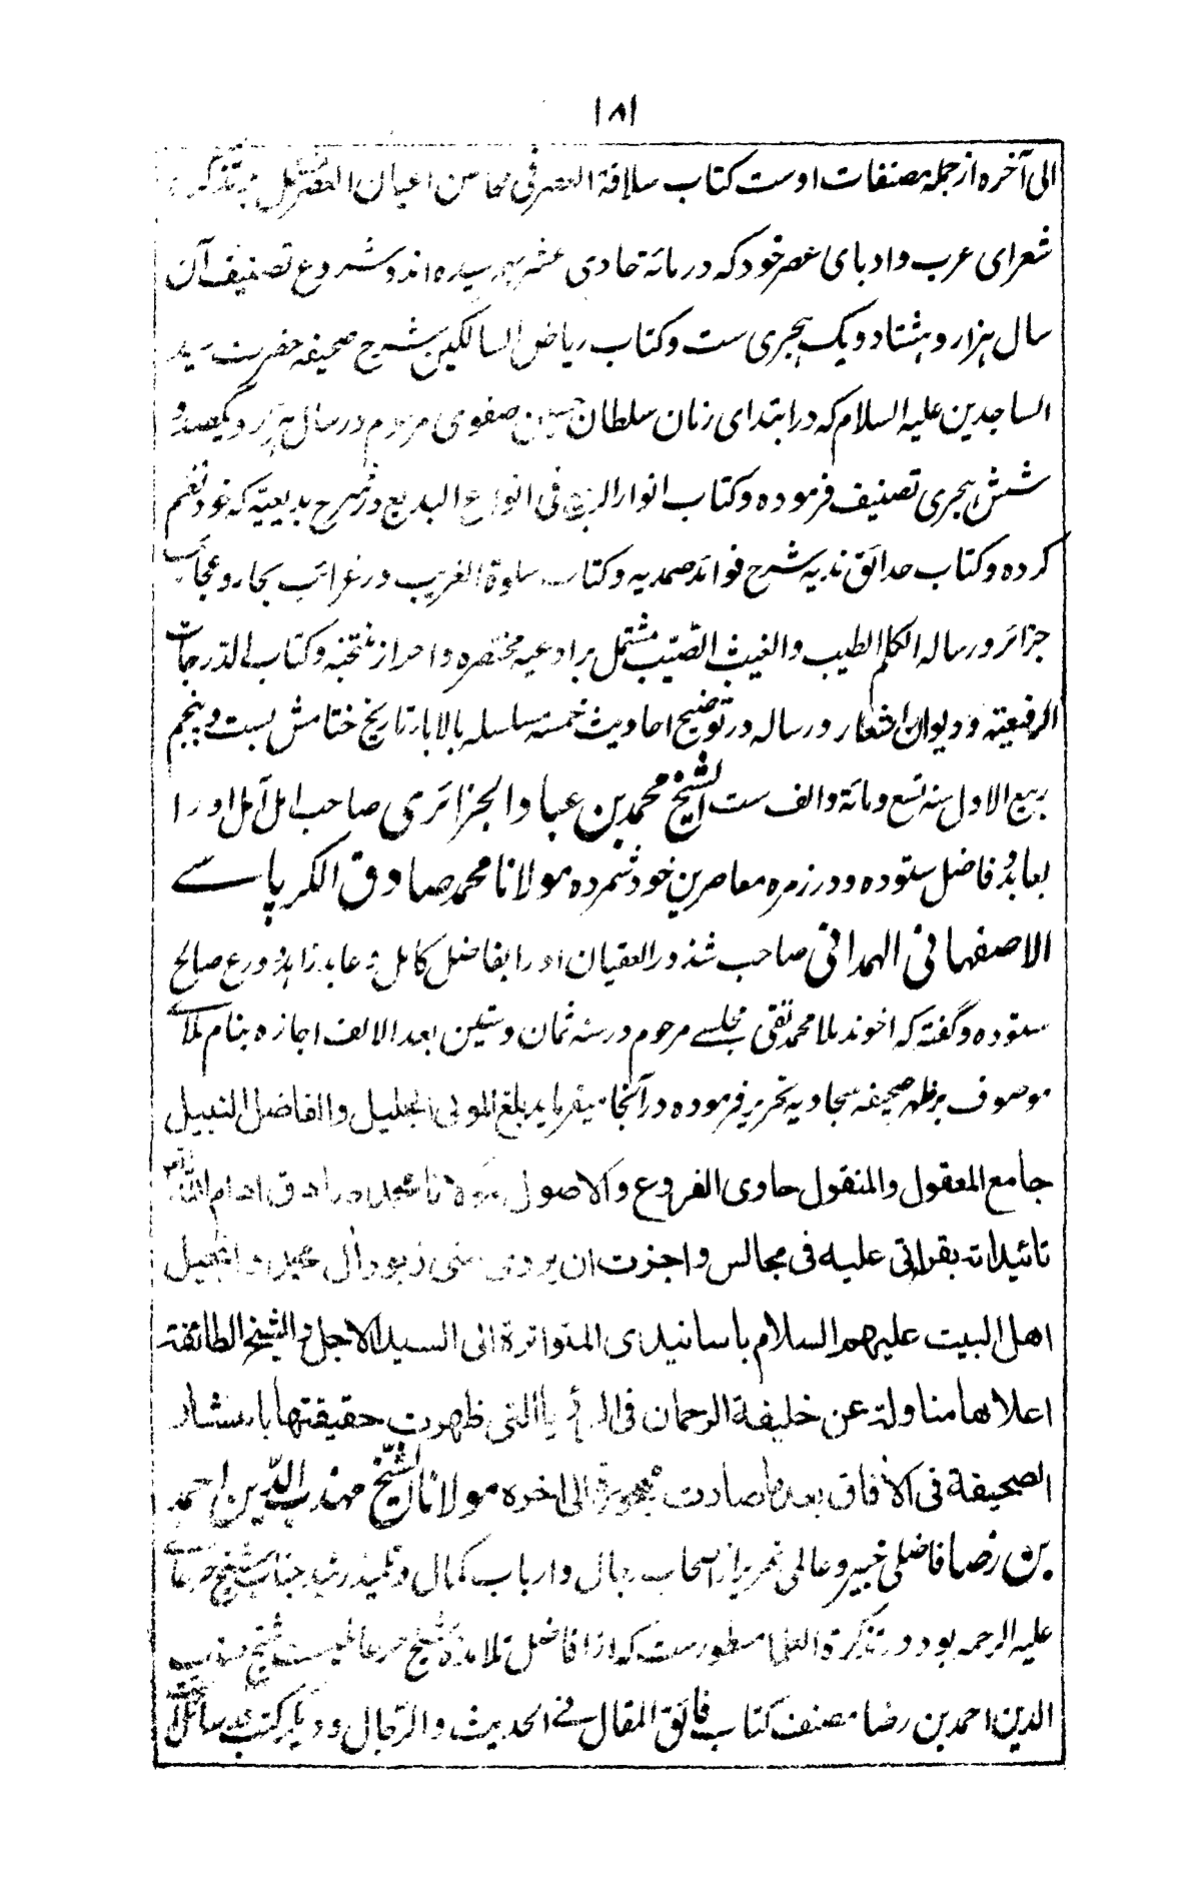 ۱۸۱
الی آخره از جمله مصنفات اوست کتاب سلافة العصر فی محاسن اعیان العصر مشتمل بر تذکره
شعرای عرب و ادبای عصر خود که در مائة حادی عشر بهم رسیده اند و شروع تصنیف آن
سال هزار و هشتاد و یک هجری ست و کتاب ریاض السالکین شرح صحیفه حضرت سید
الساجدین علیه السلام که در ابتدای زمان سلطان حسین صفوی مرحوم در سال هزار و یکصد و
شش هجری تصنیف فرموده و کتاب انوار الربیع فی انواع البدیع در شرح بدیعیّه که خود نظم
کرده و کتاب حدائق ندیه شرح فوائد صمدیه و کتاب سلوة الغریب در غرائب بحار و عجائب
جزائر و رساله الکلم الطیب و الغیث الصّیّب مشتمل بر ادعیه مختصره و احراز منتخبه و کتاب الدّرجات
الرفیعته و دیوان اشعار و رساله در توضیح احادیث خمسه مسلسله بالابا تاریخ ختامش بست و پنجم
ربیع الاول سنه تسع و مائة و الف ست الشیخ محمد بن عباد الجزائری صاحب امل آمل اورا
بعابد و فاضل ستوده و در زمره معاصرین خود شمرده مولانا محمد صادق الکرباسے
الاصفهانی الهمدانی صاحب شذور العقیان اورا بفاضل کامل و عابد زاهد ورع صالح
ستوده و گفته که اخوند ملا محمد تقی مجلسے مرحوم در سنه ثمان و ستین بعد الالف اجازه بنام ملاے
موصوف بر ظهر صحیفه سجادیه تحریر فرموده در آنجا میفرماید بلغ المولی الجلیل و الفاضل النبیل
جامع المعقول و المنقول حاوی الفروع و الاصول مولانا محمد صادق ادام الله
تائیداته بقراتی علیه فی مجالس و اجزت ان یروی عنی زبور آل محمد و انجیل
اهل البیت علیهم السلام باسانیدی المتواترة الی السید الاجل و الشیخ الطائفة
اعلاها مناولة عن خلیفة الرحمان فی الرؤیا التی ظهرت حقیقتها بانتشار
الصحیفة فی الآفاق بعد ما صارت مهجورة الی اخره مولانا الشّیخ مهذب الدّین احمد
بن رضا فاضلی خبیر و عالمی نحریر از اصحاب رجال و ارباب کمال و تلمیذ رشید جناب شیخ حر عاملے
علیه الرحمه بود در تذکرة العلما مسطور ست که از افاضل تلامذه شیخ حر عاملیست شیخ مهذب
الدین احمد بن رضا مصنف کتاب فائق المقال فے الحدیث و الرّجال و دیگر کتب و رسائل